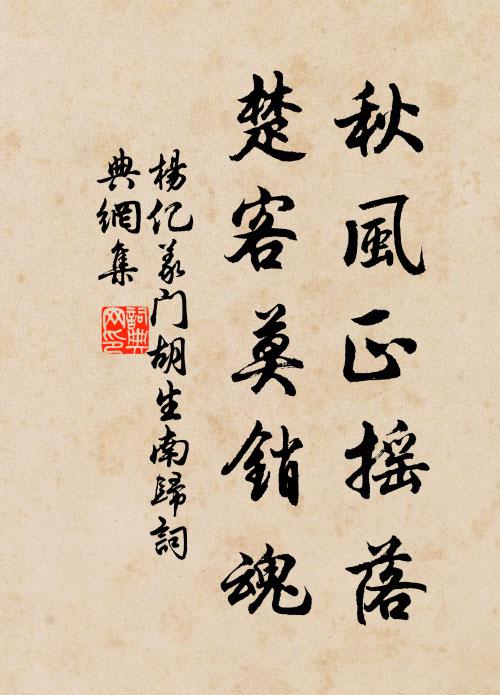 秋風正摇落
楚客莫銷魂
楊亿義門胡生南歸詞
典網集
詞典
网印